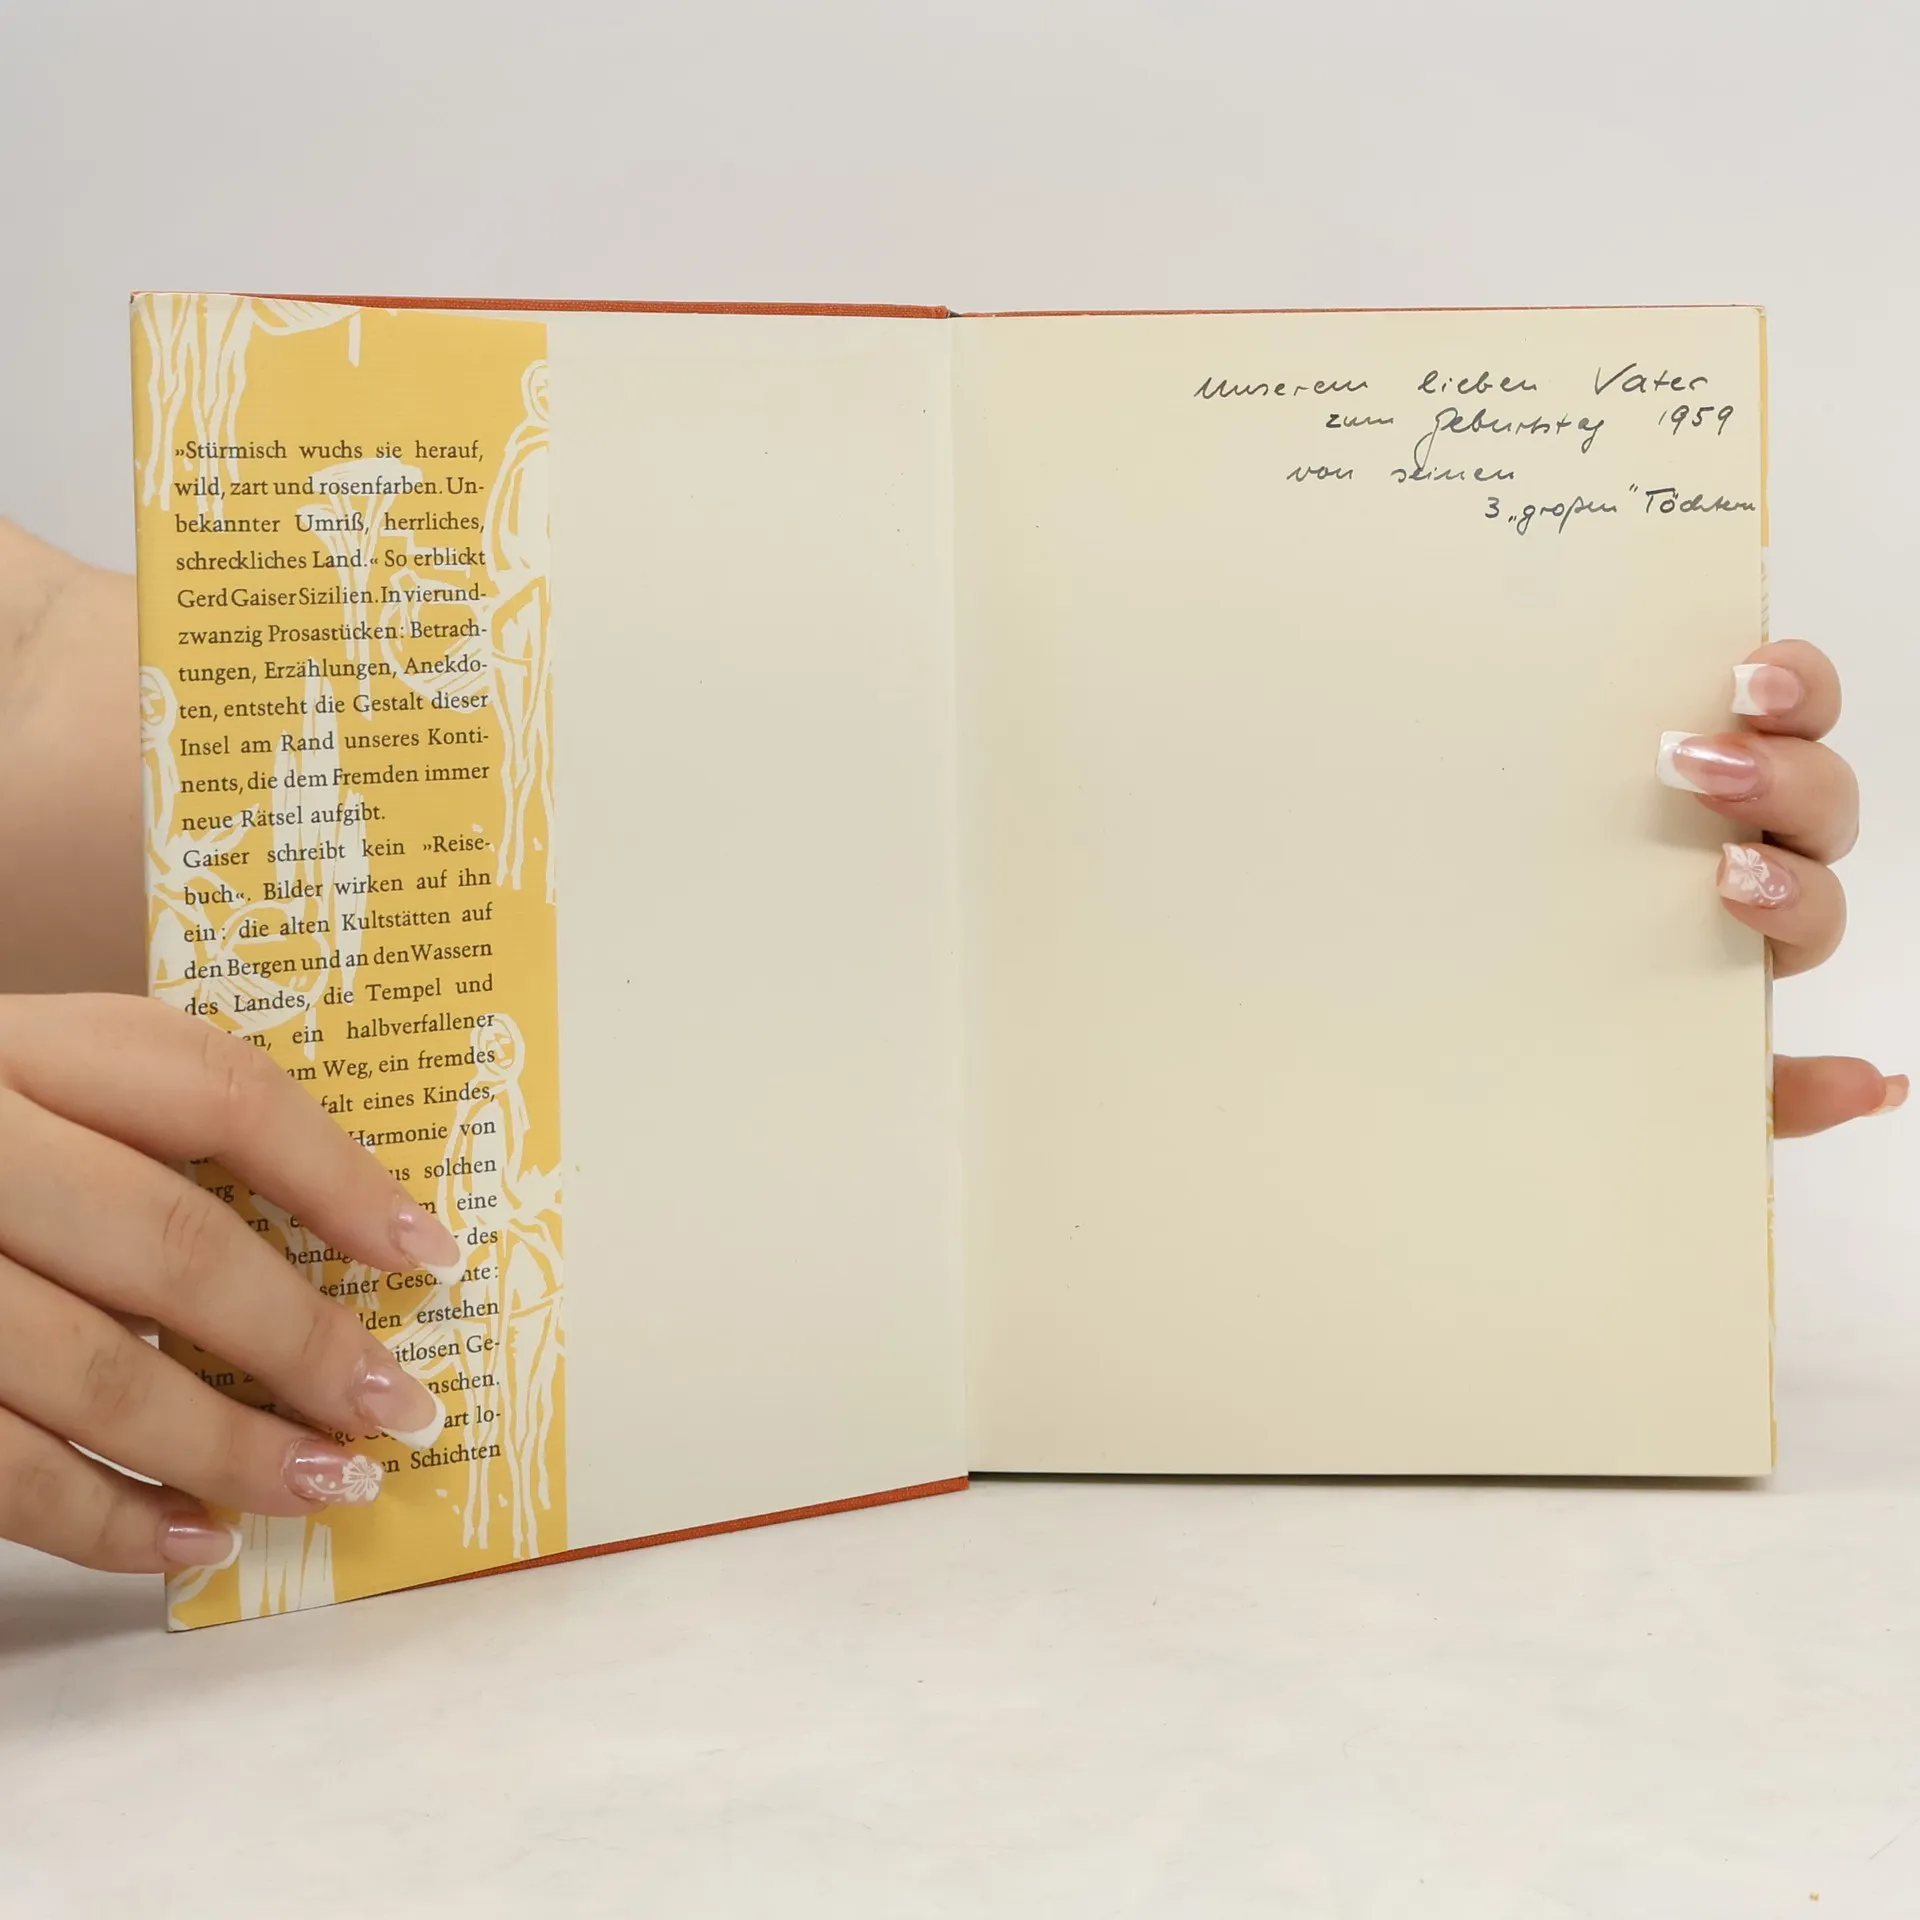 »Stürmisch wuchs sie herauf,
wild, zart und rosenfarben. Un-
bekannter Umriß, herrliches,
schreckliches Land.« So erblickt
Gerd Gaiser Sizilien. In vierund-
zwanzig Prosastücken: Betrach-
tungen, Erzählungen, Anekdo-
ten, entsteht die Gestalt dieser
Insel am Rand unseres Konti-
nents, die dem Fremden immer
neue Rätsel aufgibt.
Gaiser schreibt kein »Reise-
buch«. Bilder wirken auf ihn
ein: die alten Kultstätten auf
den Bergen und an den Wassern
des Landes, die Tempel und
ein halbverfallener
am Weg, ein fremdes
eines Kindes,
Harmonie von
solchen
eine
des
seiner
erstehen
Ge-
lo-
Schichten
Unserem lieben Vater
zum Geburtstag 1959
von seinen
3 „großen" Töchtern